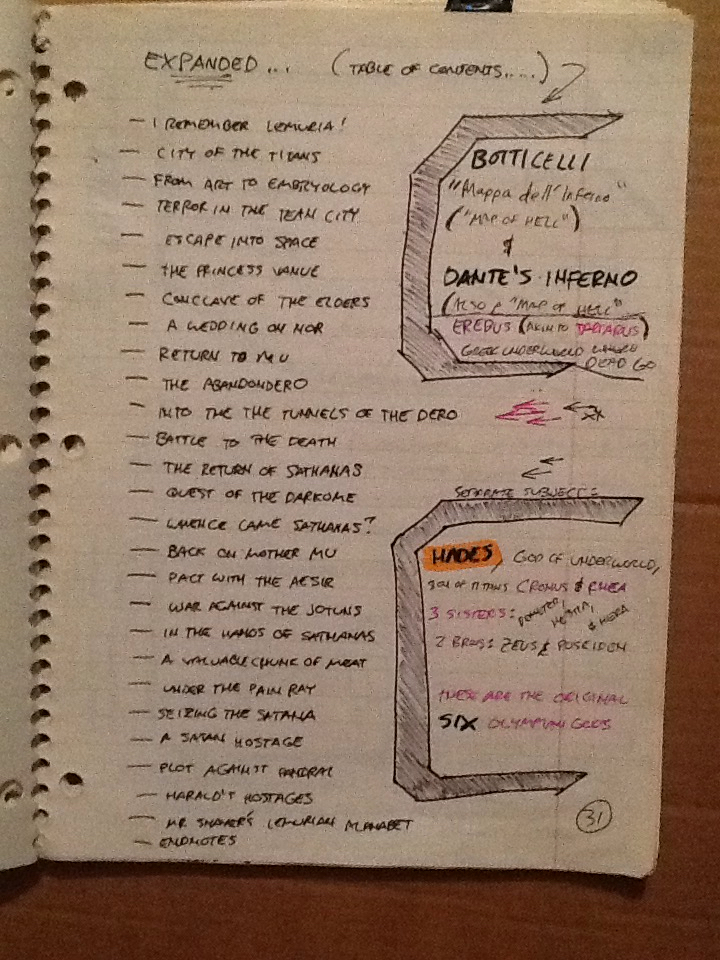 EXPANDED... (TABLE OF CONTENTS.....)
— I REMEMBER LEMURIA!
— CITY OF THE TITANS
— FROM ART TO EMBRYOLOGY
— TERROR IN THE TEAN CITY
— ESCAPE INTO SPACE
— THE PRINCESS VANUE
— CONCLAVE OF THE ELDERS
— A WEDDING ON NOR
— RETURN TO MU
— THE ABANDONDERO
— INTO THE THE TUNNELS OF THE DERO
— BATTLE TO THE DEATH
— THE RETURN OF SATHANAS
— QUEST OF THE DARKOME
— WHENCE CAME SATHANAS?
— BACK ON MOTHER MU
— PACT WITH THE AESIR
— WAR AGAINST THE JOTUNS
— IN THE HANDS OF SATHANAS
— A VALUABLE CHUNK OF MEAT
— UNDER THE PAIN RAY
— SEIZING THE SATANA
— A SATAN HOSTAGE
— PLOT AGAINST PANDRAL
— HARALD'T HOSTAGES
— MR SHAVER'S LEMURIAN ALPHABET
— ENDNOTES
BOTTICELLI
"Mappa dell'Inferno"
("MAP OF HELL")
&
DANTE'S INFERNO
(ALSO A "MAP OF HELL"
EREBUS (AKIN TO TARTARUS)
GREEK UNDERWORLD WHERE
DEAD GO
SEPARATE SUBJECT:
HADES, GOD OF UNDERWORLD,
SON OF TITANS CRONUS & RHEA
3 SISTERS: DEMETER, HESTIA, & HERA
2 BROS: ZEUS & POSEIDON
THESE ARE THE ORIGINAL
SIX OLYMPIAN GODS
31